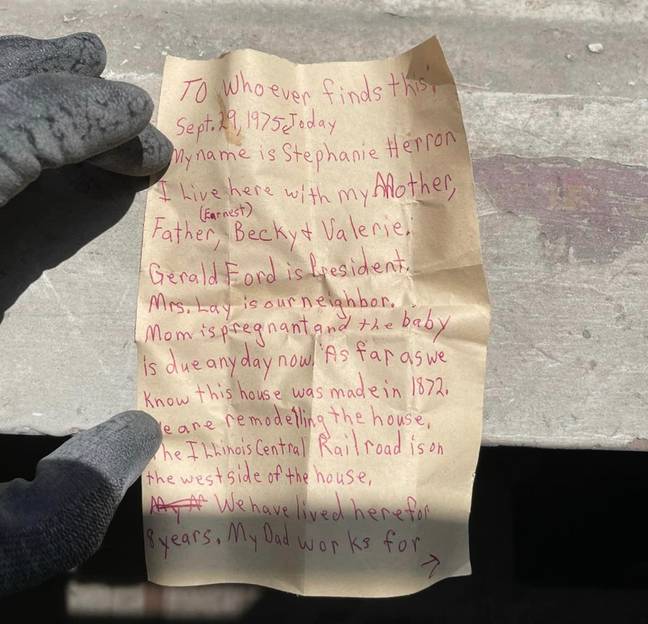 To Whoever finds this,
Sept. 29, 1975, Today
My name is Stephanie Herron
I Live here with my Mother,
(Earnest)
Father, Becky & Valerie.
Gerald Ford is President.
Mrs. Lay is our neighbor.
Mom is pregnant and the baby
is due any day now. As far as we
know this house was made in 1872.
We are remodelling the house.
The Illinois Central Railroad is on
the west side of the house.
We have lived here for
8 years. My Dad works for
→